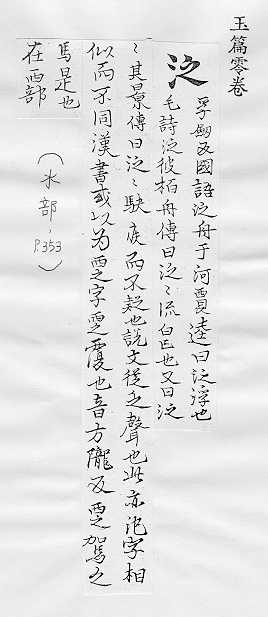 玉篇零卷
泛
孚劒反國語泛舟于河賈逵曰泛浮也
毛詩泛彼栢舟傳曰泛〻流皃也又曰泛
〻其景傳曰泛〻駃疾而不礙也說文從乏聲也此亦氾字相
似而不同漢書或以為覂字覂覆也音方隴反覂駕之
馬是也
在襾部
（水部，P.353）